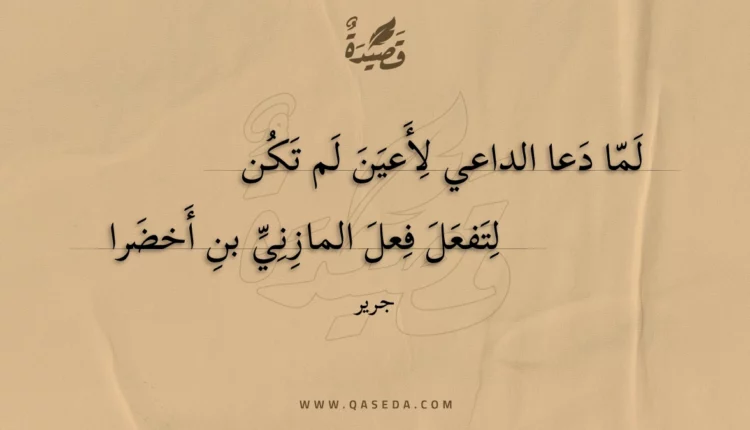 قَصِيْدَةٌ
لَمّا دَعا الداعي لِأَعيَنَ لَم تَكُن
لِتَفعَلَ فِعلَ المازِنِيِّ بنِ أَخضَرا
جرير
WWW.QASEDA.COM